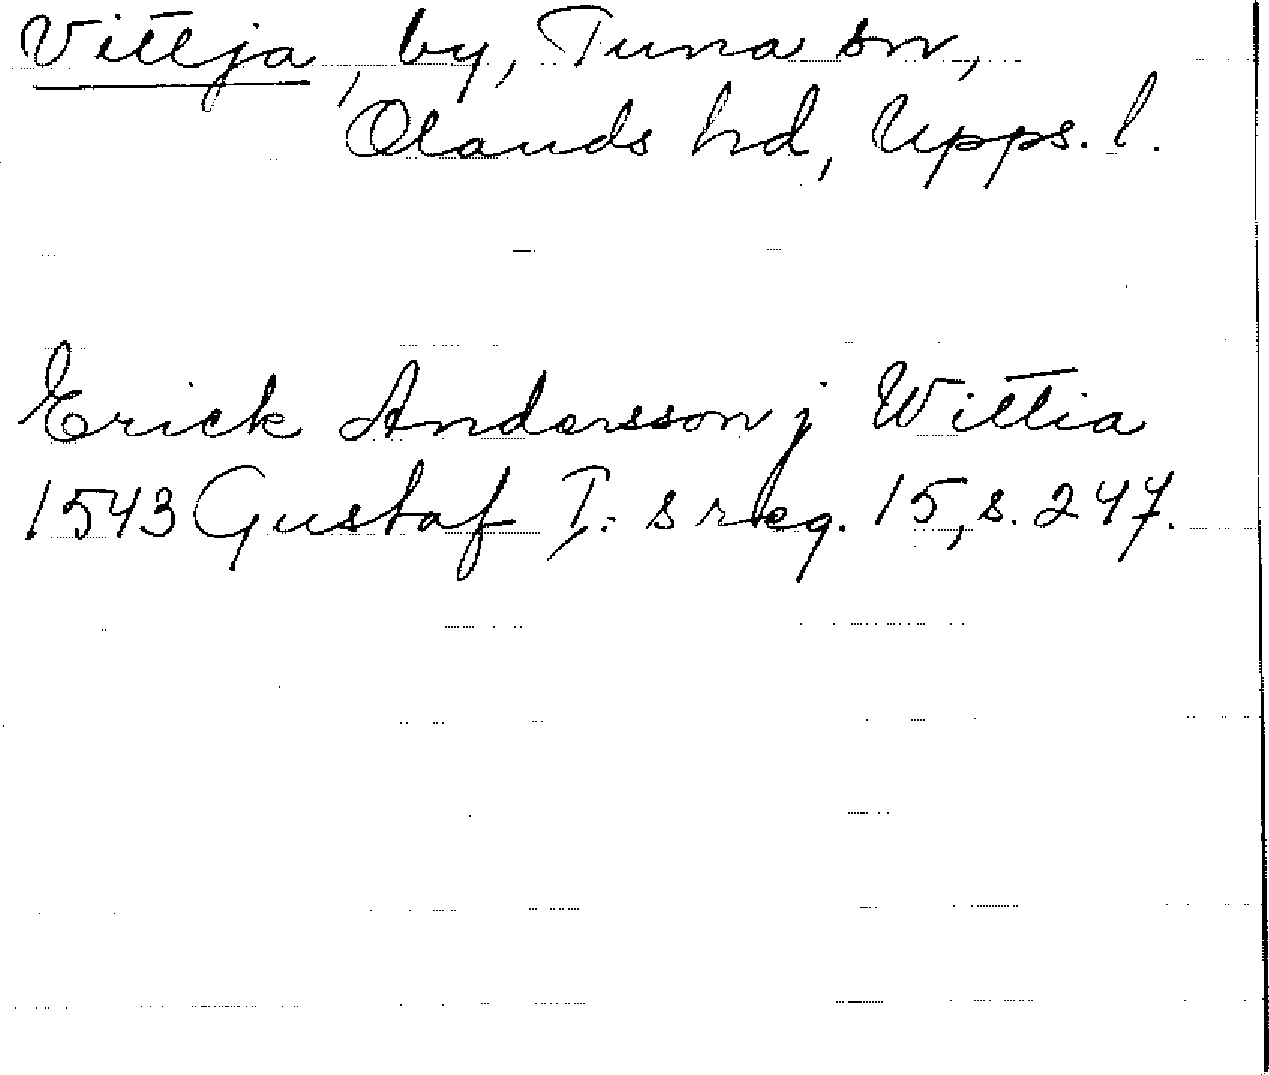 Vittja, by, Tuna sn,
Olands hd, Upps. l.
Erick Andersson j Wittia
1543 Gustaf I:s reg. 15, s. 247.